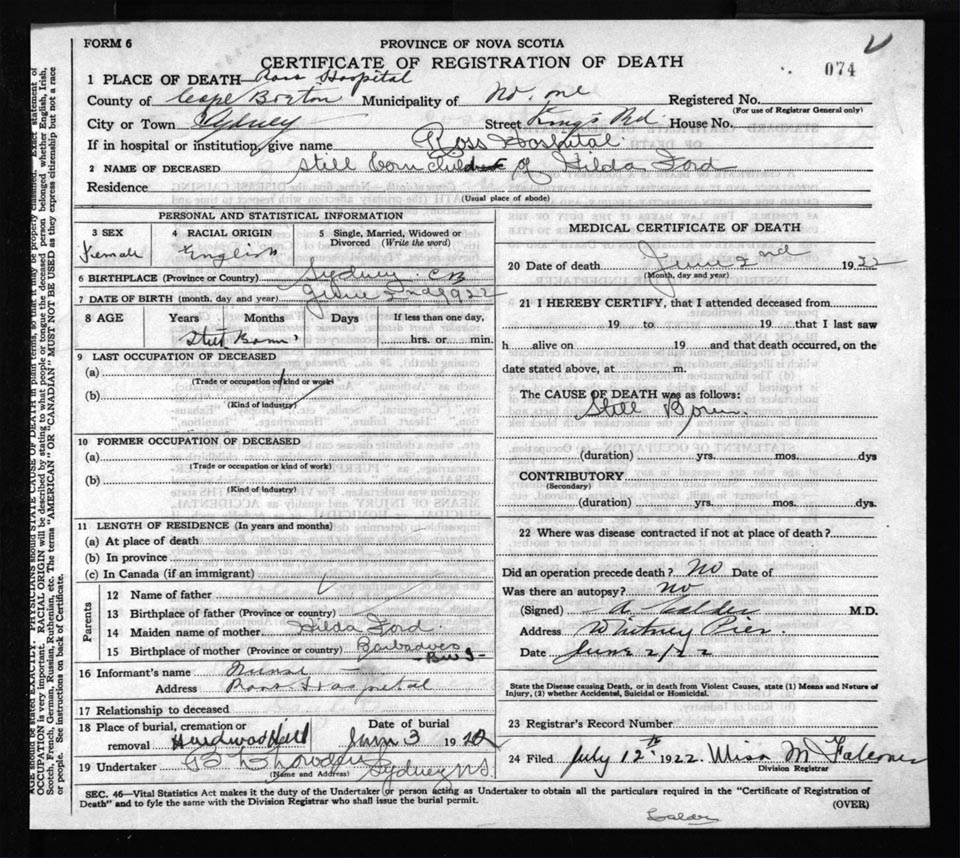 FORM 6
PROVINCE OF NOVA SCOTIA
CERTIFICATE OF REGISTRATION OF DEATH
074
1 PLACE OF DEATH Ross Hospital
County of Cape Breton Municipality of No. one Registered No.
(For use of Registrar General only)
City or Town Sydney Street Kings Rd. House No.
If in hospital or institution, give name Ross Hospital
2 NAME OF DECEASED Still born child of Hilda Ford
Residence
(Usual place of abode)
PERSONAL AND STATISTICAL INFORMATION
3 SEX
Female
4 RACIAL ORIGIN
English
5 Single, Married, Widowed or Divorced (Write the word)
6 BIRTHPLACE (Province or Country) Sydney C B
7 DATE OF BIRTH (month, day and year) June 2nd 1922
8 AGE Years Months Days If less than one day,
Still Born hrs. or min.
9 LAST OCCUPATION OF DECEASED
(a)
(Trade or occupation or kind or work)
(b)
(Kind of industry)
10 FORMER OCCUPATION OF DECEASED
(a)
(Trade or occupation or kind of work)
(b)
(Kind of industry)
11 LENGTH OF RESIDENCE (In years and months)
(a) At place of death
(b) In province
(c) In Canada (if an immigrant)
Parents
12 Name of father
13 Birthplace of father (Province or country)
14 Maiden name of mother Hilda Ford.
15 Birthplace of mother (Province or country) Barbadoes
B W I
16 Informant's name Nurse
Address Ross Hospital
17 Relationship to deceased
18 Place of burial, cremation or removal Hardwood Hill
Date of burial June 3 19
19 Undertaker Sydney N S.
(Name and Address)
MEDICAL CERTIFICATE OF DEATH
20 Date of death June 2nd 1922
(Month, day and year)
21 I HEREBY CERTIFY, that I attended deceased from
19 to 19 that I last saw
h alive on 19 and that death occurred, on the
date stated above, at m.
The CAUSE OF DEATH was as follows:
Still Born.
(duration) yrs. mos. dys
CONTRIBUTORY
(Secondary)
(duration) yrs. mos. dys.
22 Where was disease contracted if not at place of death?
Did an operation precede death? No Date of
Was there an autopsy? no
(Signed) A Calder M.D.
Address Whitney Pier.
Date June 2/22
State the Disease causing Death, or in death from Violent Causes, state (1) Means and Nature of
Injury, (2) whether Accidental, Suicidal or Homicidal.
23 Registrar's Record Number
24 Filed July 12th 1922. Miss M Falconer
Division Registrar
SEC. 46—Vital Statistics Act makes it the duty of the Undertaker or person acting as Undertaker to obtain all the particulars required in the "Certificate of Registration of
Death" and to fyle the same with the Division Registrar who shall issue the burial permit.
(OVER)
Calder